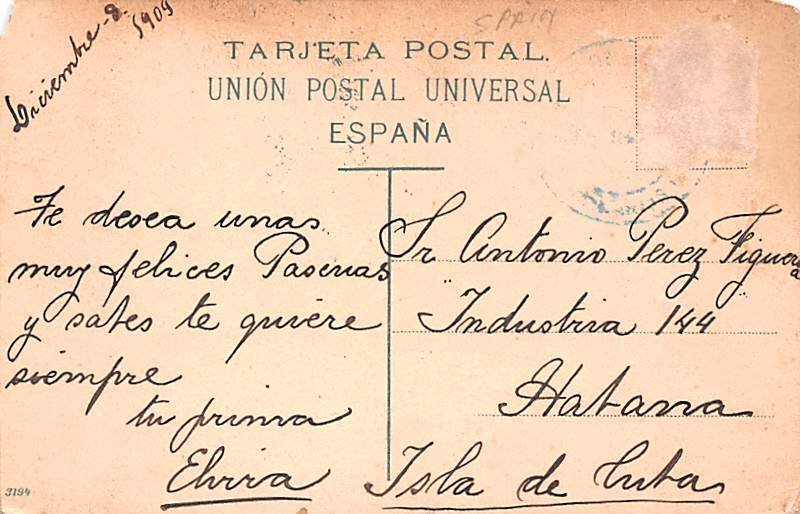 Diciembre - 8.
1909
SPAIN
TARJETA POSTAL.
UNIÓN POSTAL UNIVERSAL
ESPAÑA
Te desea unas
muy felices Pascuas
y sabes te quiere
siempre
tu prima
Elvira
Sr Antonio Perez Figuera
Industria 144
Habana
Isla de Cuba
3194